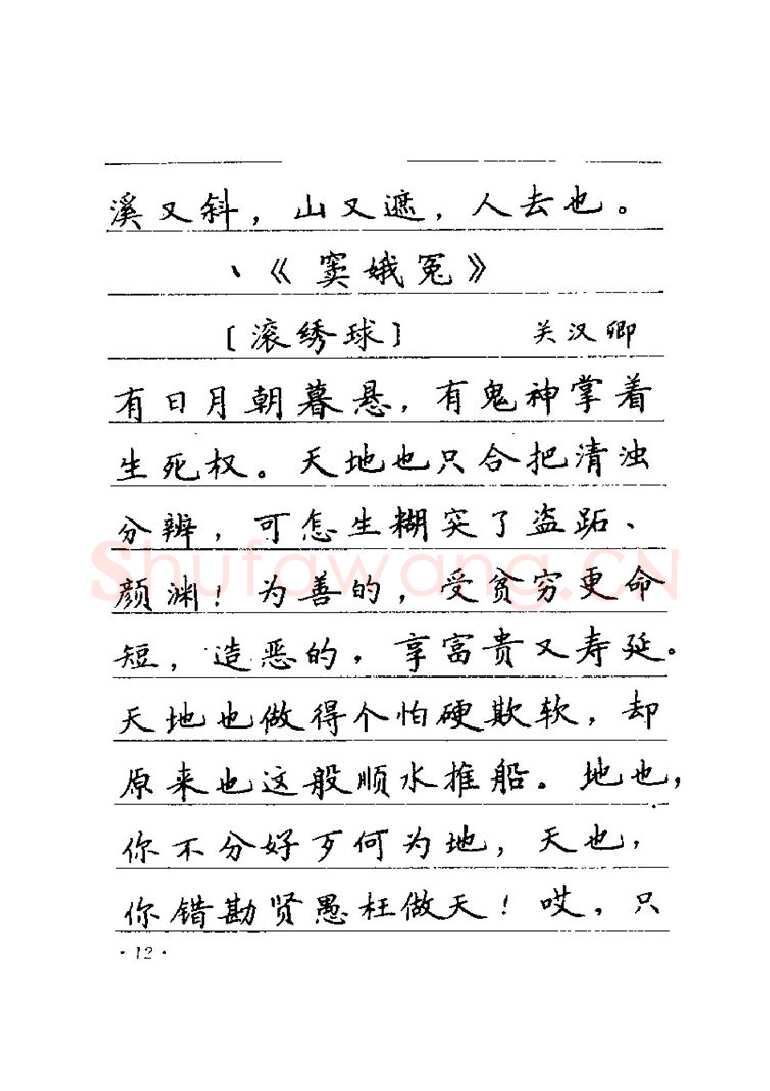 溪又斜，山又遮，人去也。
、《窦娥冤》
〔滚绣球〕 关汉卿
有日月朝暮悬，有鬼神掌着
生死权。天地也只合把清浊
分辨，可怎生糊突了盗跖、
颜渊！为善的，受贫穷更命
短，造恶的，享富贵又寿延。
天地也做得个怕硬欺软，却
原来也这般顺水推船。地也，
你不分好歹何为地，天也，
你错勘贤愚枉做天！哎，只
·12·
Shufawang.CN